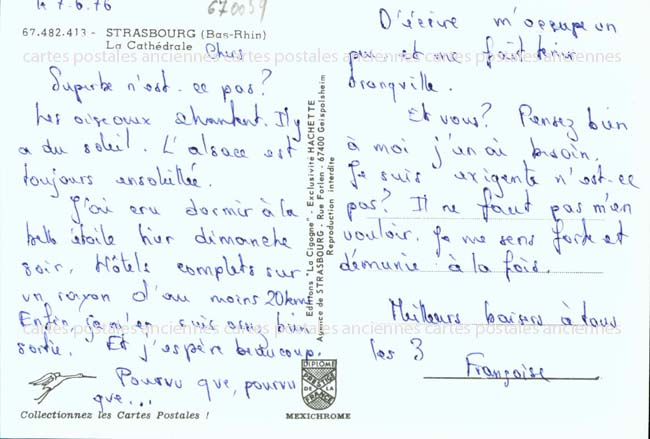 le 7.6.76
670059
67.482.413 - STRASBOURG (Bas-Rhin)
La Cathédrale
Chers
Superbe n'est-ce pas?
Les oiseaux chantent. Il y
a du soleil. L'alsace est
toujours ensoleillée.
J'ai cru dormir à la
belle étoile hier dimanche
soir. Hôtels complets sur
un rayon d'au moins 20kms
Enfin je m'en suis assez bien
sortie. Et j'espère beaucoup.
Pourvu que, pourvu
que...
Collectionnez les Cartes Postales !
Editions "La Cigogne" - Exclusivité HACHETTE
Agence de STRASBOURG, Rue Forlen - 67400 Geispolsheim
Reproduction interdite
DIPLOME
PRESTIGE
DE LA
FRANCE
MEXICHROME
D'écrire m'occupe un
peu et me fait tenir
tranquille.
Et vous? Pensez bien
à moi j'en ai besoin.
Je suis exigente n'est-ce
pas? Il ne faut pas m'en
vouloir. Je me sens forte et
démunie à la fois.
Meilleurs baisers à tous
les 3
Françoise
cartes postales anciennes cartes postales anciennes cartes postales anciennes
cartes postales anciennes cartes postales anciennes cartes postales anciennes